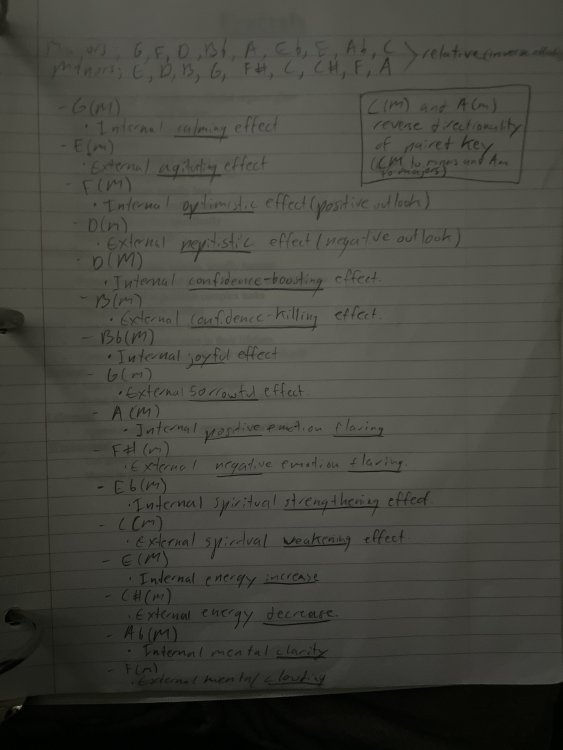 Majors; G, F, D, Bb, A, Eb, E, Ab, C
Minors; E, D, B, G, F#, C, C#, F, A
relative (inverse
C(M) and A(m)
reverse directionality
of paired key
(CM to minors and Am
to majors)
- G(M)
• Internal calming effect
- E(m)
• External agitating effect
- F(M)
• Internal optimistic effect (positive outlook)
D(m)
• External effect (negative outlook)
- D(M)
• Internal confidence-boosting effect.
- B(m)
• External confidence-killing effect.
- Bb(M)
• Internal joyful effect
- G(m)
• External sorrowful effect
- A(M)
• Internal positive emotion flaring
- F#(m)
• External negative emotion flaring.
- Eb(M)
• Internal spiritual strengthening effect.
- C(m)
• External spiritual weakening effect
- E(M)
• Internal energy increase
- C#(m)
• External energy decrease.
- Ab(M)
• Internal mental clarity
- F(m)
• External mental clouding